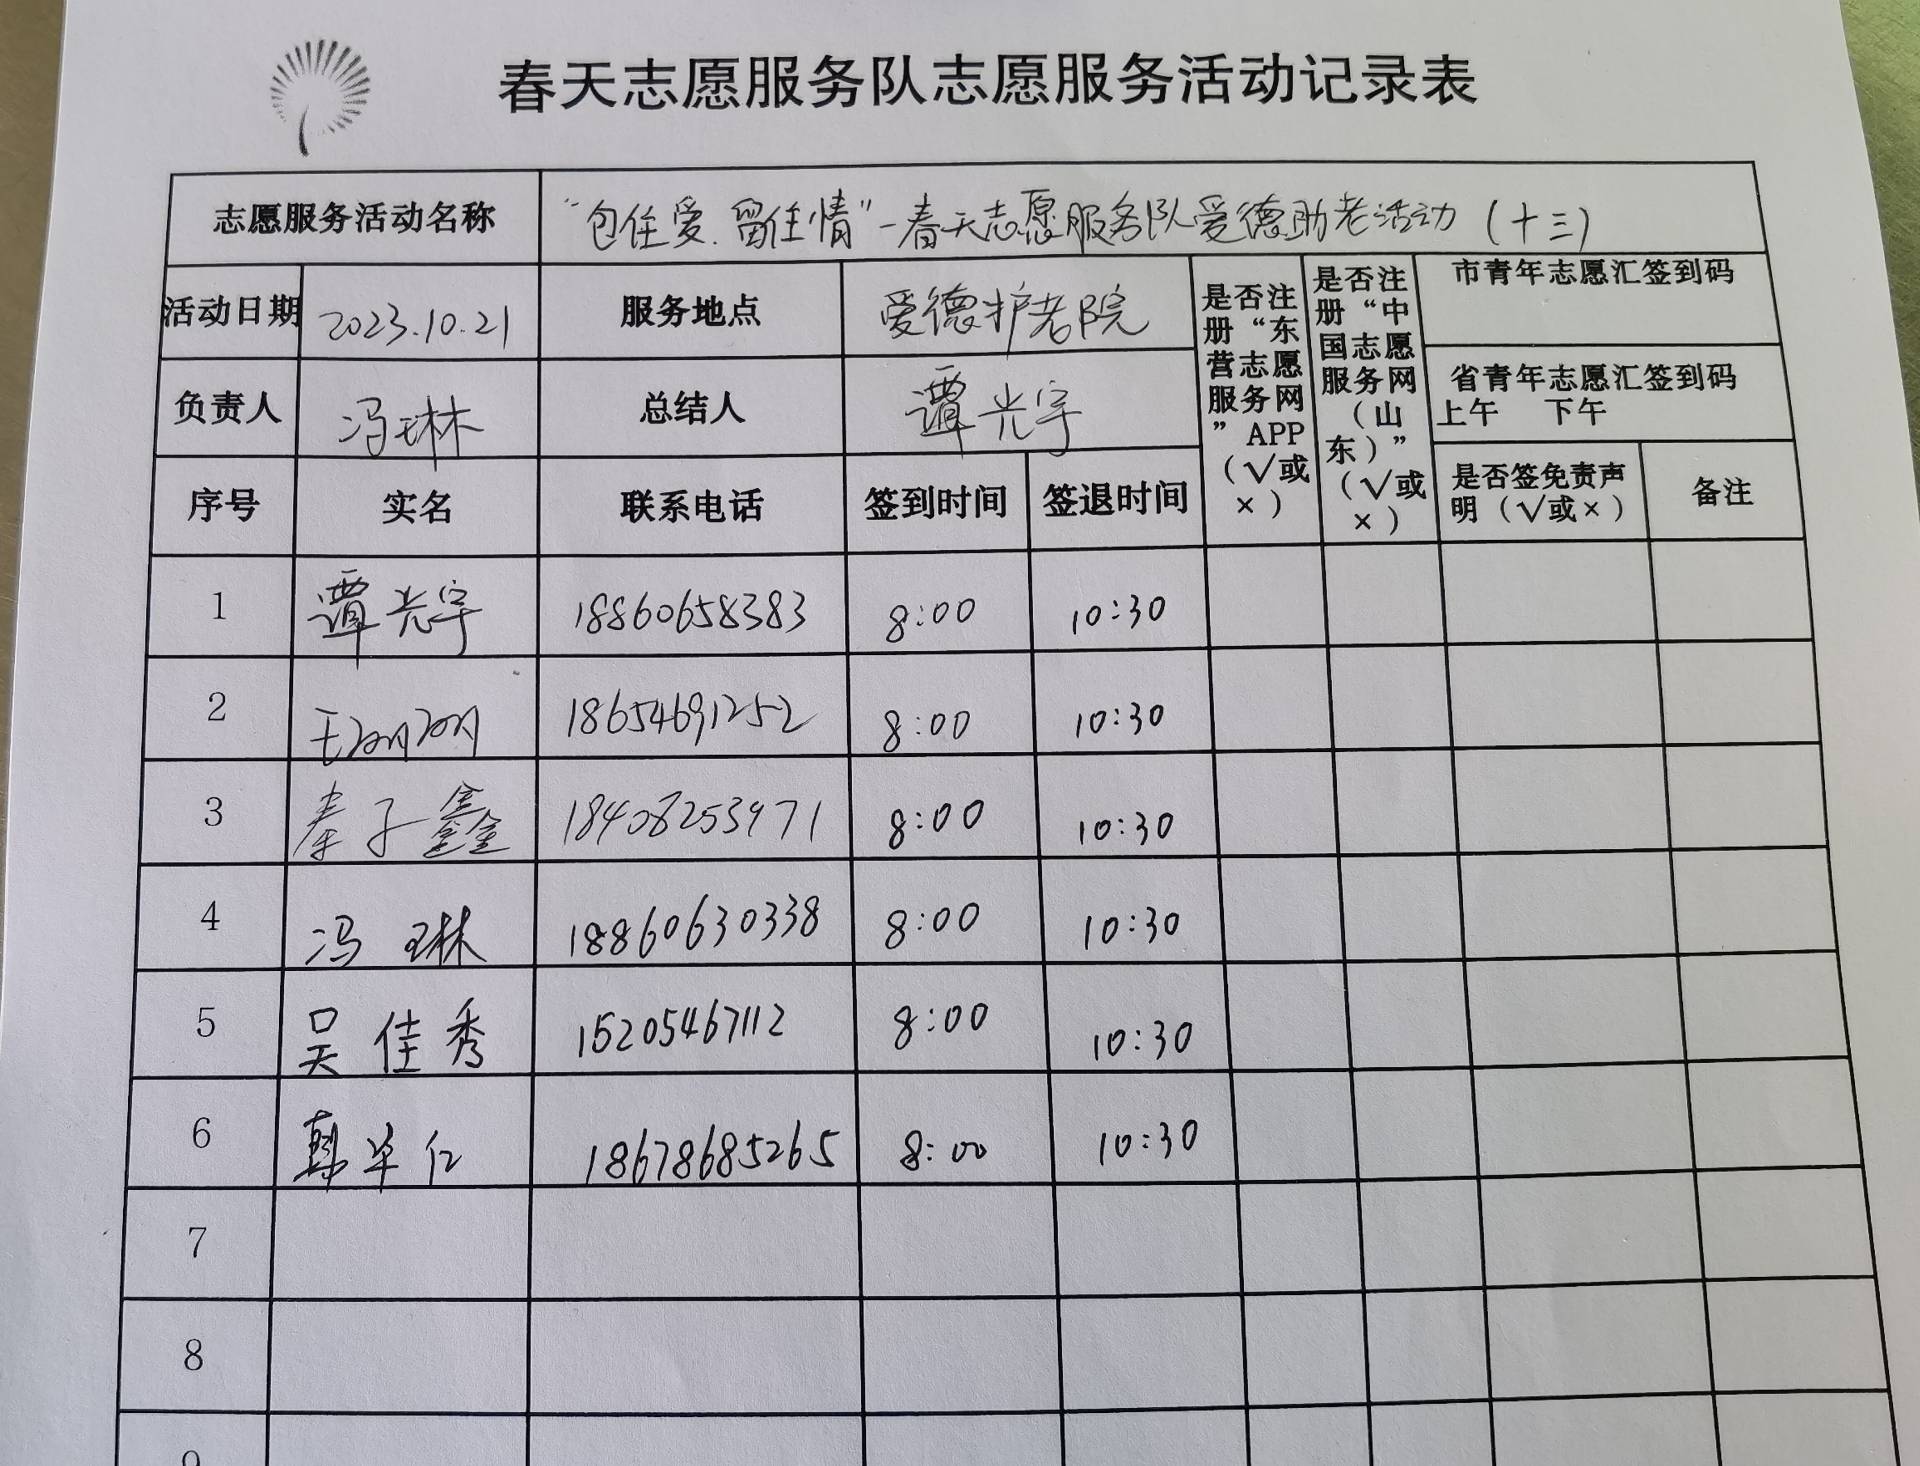 春天志愿服务队志愿服务活动记录表
志愿服务活动名称 “包住爱.留住情”-春天志愿服务队爱德助老活动(十三)
活动日期 2023.10.21 服务地点 爱德护老院
是否注册“东营志愿服务网”APP（√或×）
是否注册“中国志愿服务网（山东）”（√或×）
市青年志愿汇签到码
负责人 冯琳 总结人 谭光宇
省青年志愿汇签到码
上午 下午
序号 实名 联系电话 签到时间 签退时间 是否签免责声明（√或×） 备注
1 谭光宇 18860658383 8:00 10:30
2 王 18654691252 8:00 10:30
3 秦子鑫 18408253971 8:00 10:30
4 冯琳 18860630338 8:00 10:30
5 吴佳秀 15205467112 8:00 10:30
6 18678685265 8:00 10:30
7
8